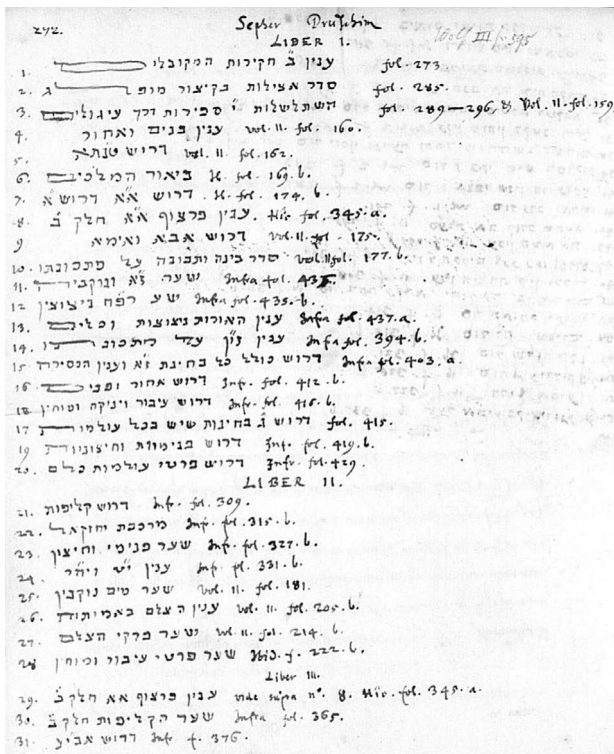 272. Sepher Druschim Wolf III f. 595
LIBER I.
1. ענין ב' חקירות המקובלי fol. 273
2. סדר אצילות בקיצור מופ ג fol. 285.
3. השתלשלות י' ספירות דרך עיגולים fol. 289—296. & Vol. 11. fol. 159
4. ענין פנים ואחור vol. 11. fol. 160.
5. דרוש vol. 11. fol. 162.
6. ביאור המלכים fol. 169. b.
7. דרוש א"א דרוש א fol. 174. b.
8. ענין פרצוף א"א חלק ב' Hic fol. 345. a.
9. דרוש אבא ואימא vol. 11. fol. 175.
10. סדר בינה ותבונה על מתכונתו vol. 11 fol. 177. b.
11. שער ז"א ונוקביה Infra fol. 435.
12. שע רפ"ח ניצוצין Infra fol. 435. b.
13. ענין האורות ניצוצות וכלים Infra fol. 437. a.
14. ענין זו"ן Infra fol. 394. b.
15. דרוש כולל כל בחינת ז"א וענין הנסירה Infra fol. 403. a.
16. דרוש אחור ופנים Inf. fol. 412. b.
18. דרוש עיבור ויניקה ומוחין fol. 416. b.
17. דרוש ג' בחינות שיש בכל עולמות fol. 415.
19. דרוש פנימיות וחיצוניות Inf. fol. 419. b.
20. דרוש פרטי עולמות כלם Infr. fol. 429.
LIBER II.
21. דרוש קליפות Inf. fol. 309.
22. מרכבת יחזקאל Inf. fol. 315. b.
23. שער פנימי וחיצון Inf. fol. 327. b.
24. ענין Inf. fol. 331. b.
25. שער מים נוקבין vol. 11. fol. 181.
26. ענין הצלם באמיתות vol. 11. fol. 205. b.
27. שער פרקי הצלם vol. 11. fol. 214. b.
28 שער פרטי עיבור ומוחין Ibid. f. 222. b.
Liber III.
29. ענין פרצוף אא חלק ב' vide supra n°. 8. Hic. fol. 345. a.
30. שער הקליפות חלק ב' Infra fol. 365.
31. דרוש אבי"ע Inf. f. 376.